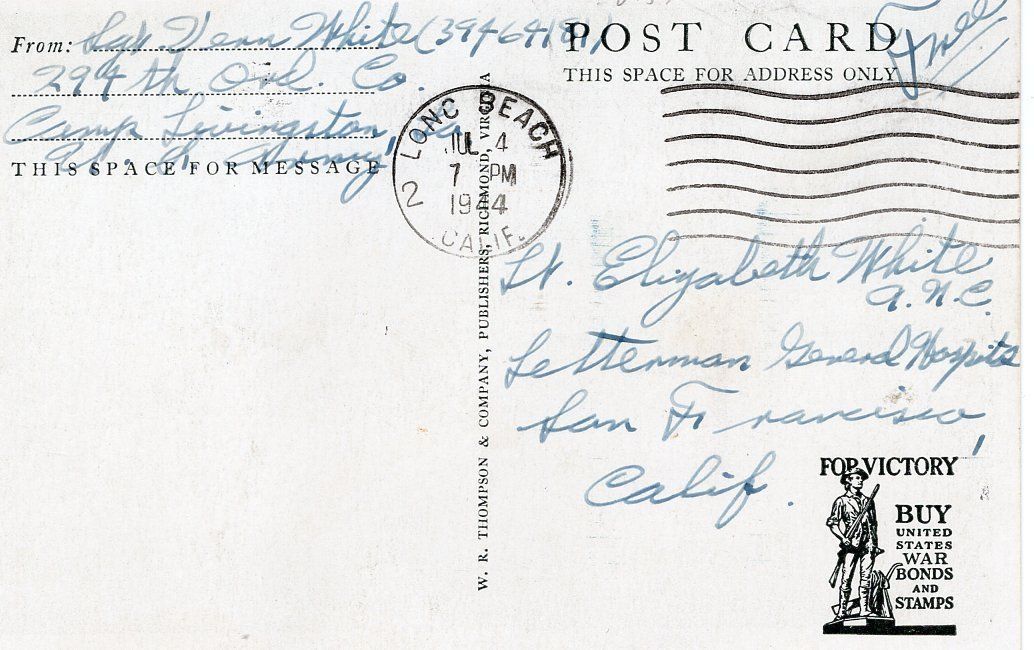 From: Sgt. Vern White (39464181)
294 th Ord. Co.
Camp Livingston, La.
U. S. Army
THIS SPACE FOR MESSAGE
POST CARD
THIS SPACE FOR ADDRESS ONLY
Free
LONG BEACH
JUL 4
7 PM
1944
CALIF.
2
W. R. THOMPSON & COMPANY, PUBLISHERS, RICHMOND, VIRGINIA
Lt. Elizabeth White
A.N.C.
Letterman General Hospital
San Francisco,
Calif.
FOR VICTORY
BUY
UNITED
STATES
WAR
BONDS
AND
STAMPS